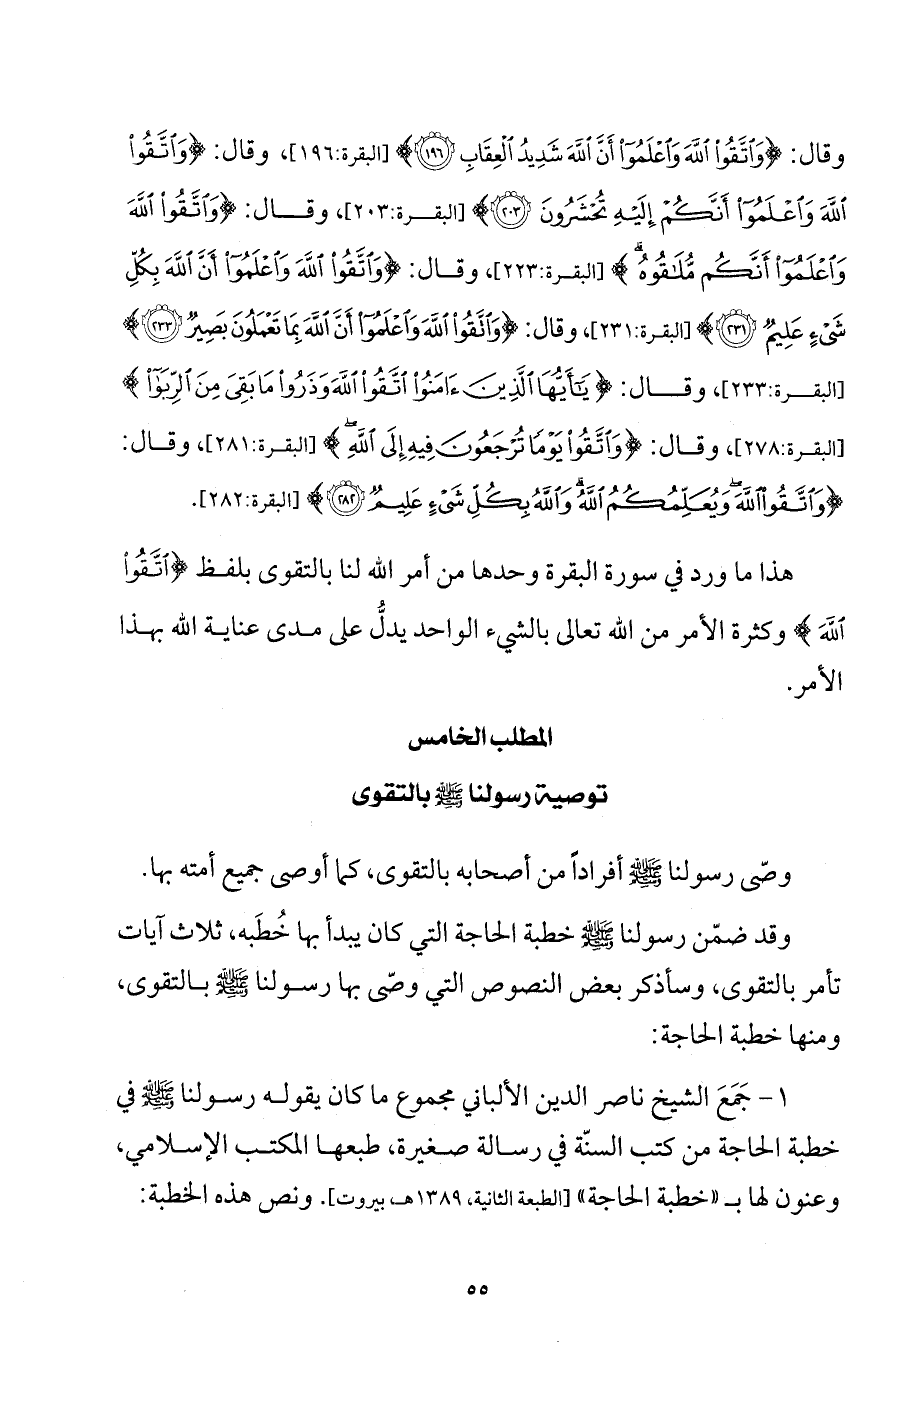 وقال: ﴿وَٱتَّقُوا۟ ٱللَّهَ وَٱعْلَمُوٓا۟ أَنَّ ٱللَّهَ شَدِيدُ ٱلْعِقَابِ ١٩٦﴾ [البقرة:١٩٦]، وقال: ﴿وَٱتَّقُوا۟
ٱللَّهَ وَٱعْلَمُوٓا۟ أَنَّكُمْ إِلَيْهِ تُحْشَرُونَ ٢٠٣﴾ [البقرة:٢٠٣]، وقال: ﴿وَٱتَّقُوا۟ ٱللَّهَ
وَٱعْلَمُوٓا۟ أَنَّكُم مُّلَـٰقُوهُ ۗ﴾ [البقرة:٢٢٣]، وقال: ﴿وَٱتَّقُوا۟ ٱللَّهَ وَٱعْلَمُوٓا۟ أَنَّ ٱللَّهَ بِكُلِّ
شَىْءٍ عَلِيمٌ ٢٣١﴾ [البقرة:٢٣١]، وقال: ﴿وَٱتَّقُوا۟ ٱللَّهَ وَٱعْلَمُوٓا۟ أَنَّ ٱللَّهَ بِمَا تَعْمَلُونَ بَصِيرٌ ٢٣٣﴾
[البقرة:٢٣٣]، وقال: ﴿يَـٰٓأَيُّهَا ٱلَّذِينَ ءَامَنُوا۟ ٱتَّقُوا۟ ٱللَّهَ وَذَرُوا۟ مَا بَقِىَ مِنَ ٱلرِّبَوٰٓا۟﴾
[البقرة:٢٧٨]، وقال: ﴿وَٱتَّقُوا۟ يَوْمًا تُرْجَعُونَ فِيهِ إِلَى ٱللَّهِ ۖ﴾ [البقرة:٢٨١]، وقال:
﴿وَٱتَّقُوا۟ ٱللَّهَ ۖ وَيُعَلِّمُكُمُ ٱللَّهُ ۗ وَٱللَّهُ بِكُلِّ شَىْءٍ عَلِيمٌ ٢٨٢﴾ [البقرة:٢٨٢].
هذا ما ورد في سورة البقرة وحدها من أمر الله لنا بالتقوى بلفظ ﴿ٱتَّقُوا۟
ٱللَّهَ﴾ وكثرة الأمر من الله تعالى بالشيء الواحد يدلُّ على مدى عناية الله بهذا
الأمر.
المطلب الخامس
توصية رسولنا ﷺ بالتقوى
وصّى رسولنا ﷺ أفراداً من أصحابه بالتقوى، كما أوصى جميع أمته بها.
وقد ضمّن رسولنا ﷺ خطبة الحاجة التي كان يبدأ بها خُطَبه، ثلاث آيات
تأمر بالتقوى، وسأذكر بعض النصوص التي وصّى بها رسولنا ﷺ بالتقوى،
ومنها خطبة الحاجة:
١- جَمَعَ الشيخ ناصر الدين الألباني مجموع ما كان يقوله رسولنا ﷺ في
خطبة الحاجة من كتب السنّة في رسالة صغيرة، طبعها المكتب الإسلامي،
وعنون لها بـ «خطبة الحاجة» [الطبعة الثانية، ١٣٨٩هـ، بيروت]. ونص هذه الخطبة:
٥٥